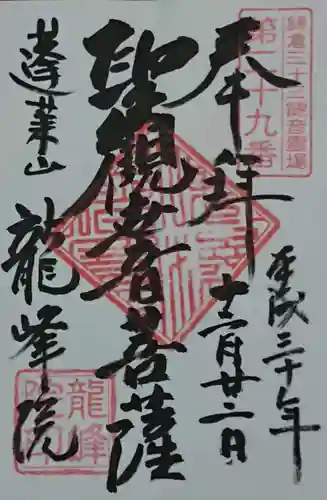 鎌倉三十三観音霊場
第二十九番
奉拝
平成三十年
十一月廿二日
聖観世音菩薩
蓬莱山
龍峰院
龍峰
院印